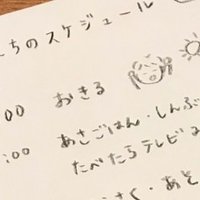 ちのスケジュール
:00 おきる
:00 あさごはん・しんぶ
たべたらテレビ
さく・あそ